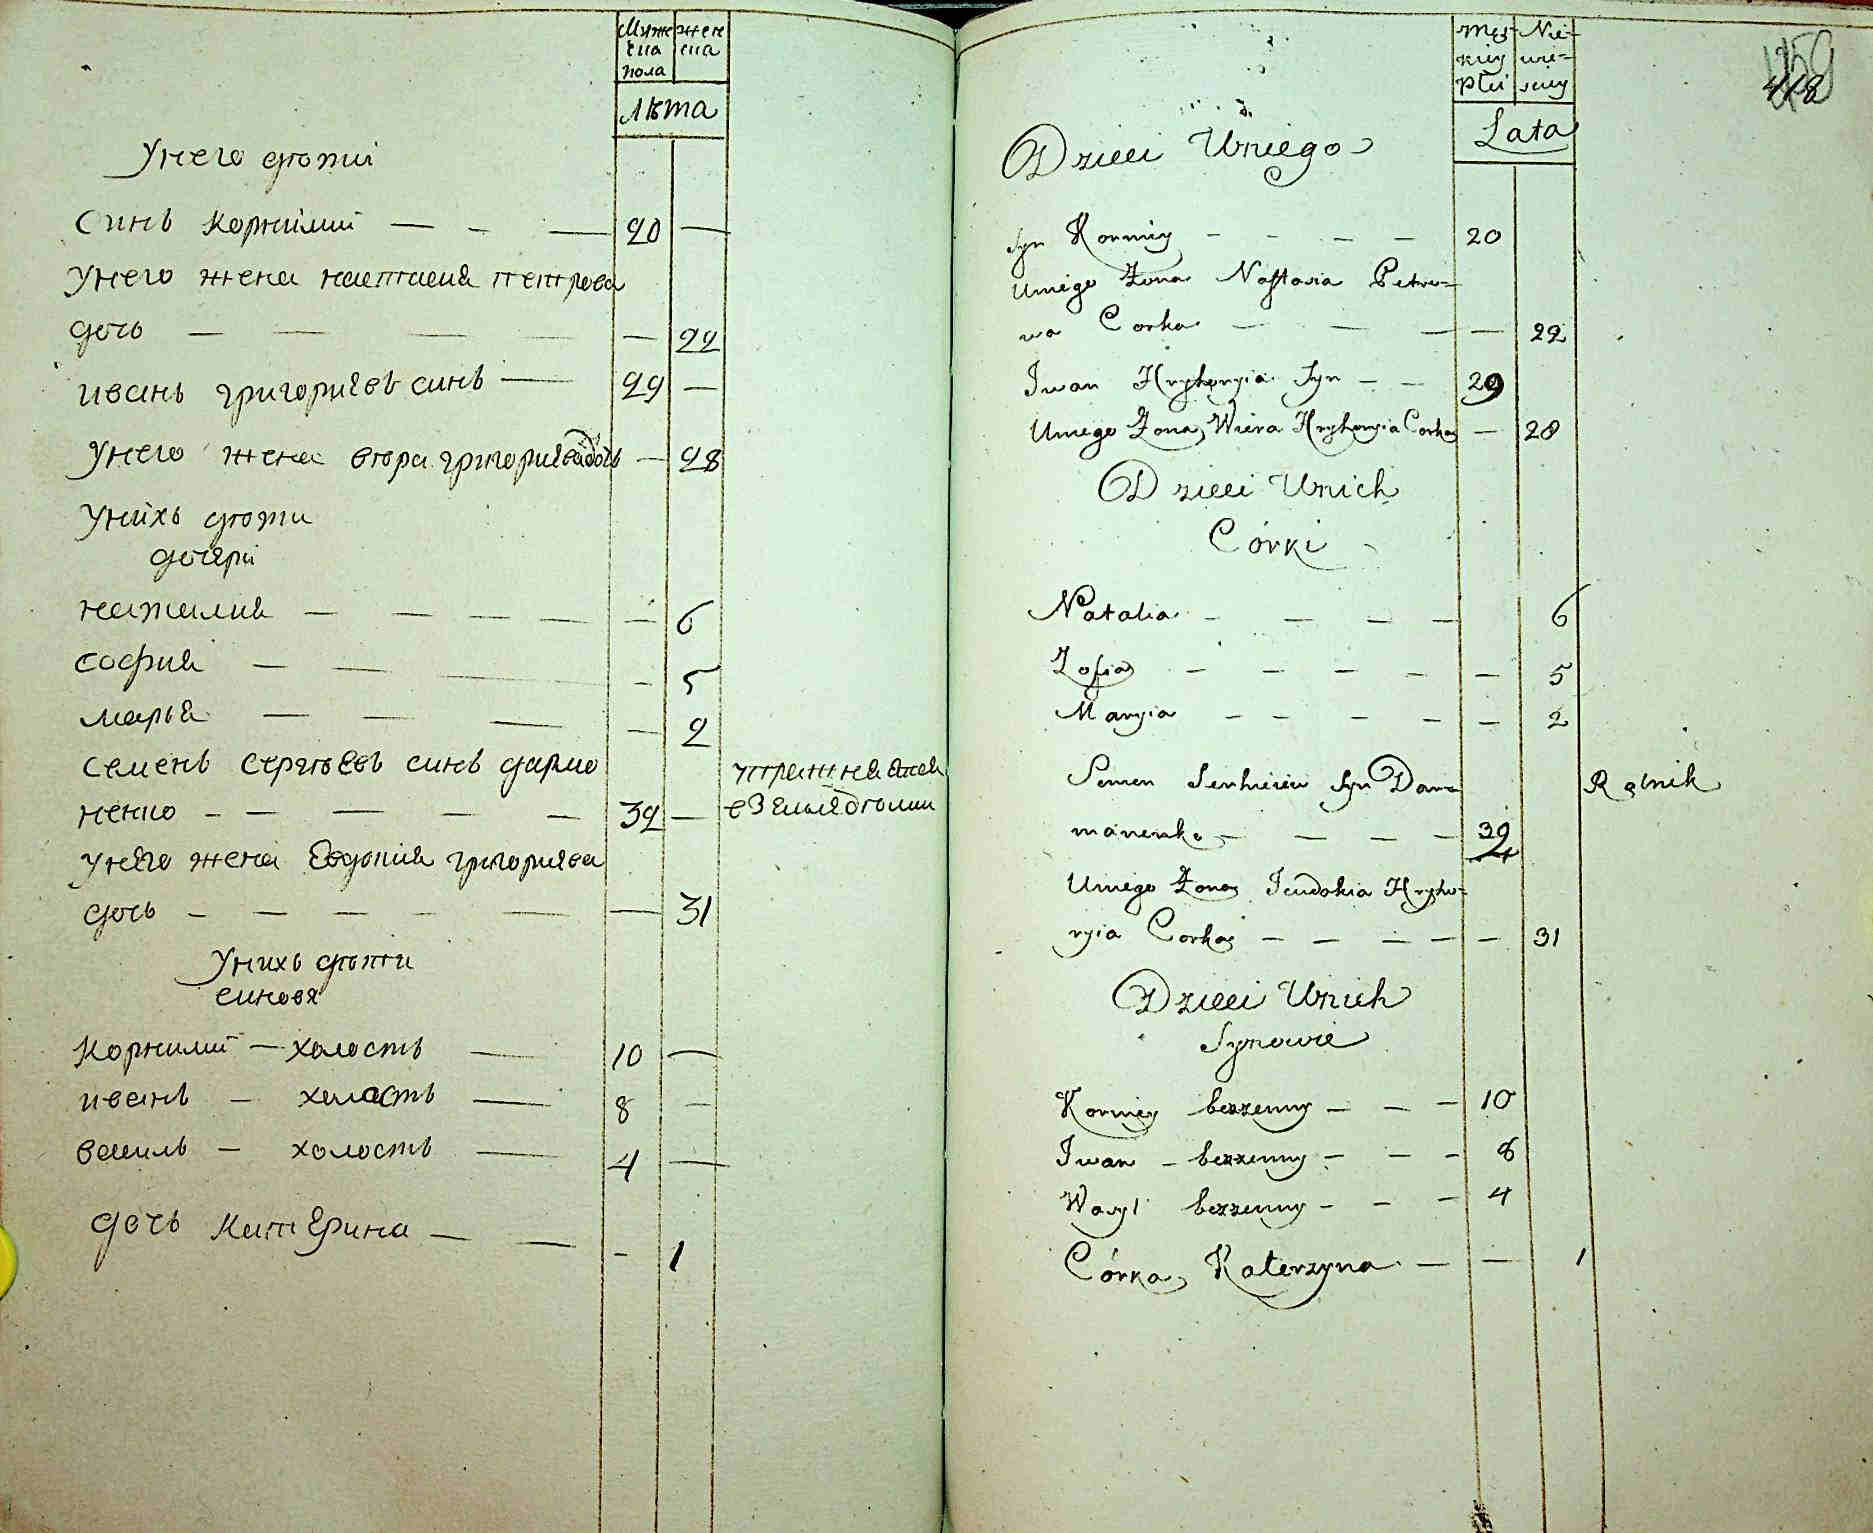 Мужеска пола женска
Лѣта
Унего дѣти
синъ корнилий — — — 20 —
Унего жена настасия петрова
дочь — — — — — 22
иванъ григориевъ синъ — 29 —
Унего жена вѣра григориева дочь — 28
Унихъ дѣти
дочери
наталия — — — — — 6
София — — — — 5
марья — — — — 2
семенъ сергѣевъ синъ дармо
ненко — — — — — 32 —
упражняется
в земледѣлии
унего жена Евдокия григориева
дочь — — — — — — 31
Унихъ дѣти
синовя
корнилий — холостъ — 10 —
иванъ — холостъ — 8 —
василь — холостъ — 4 —
дочь катерина — — — 1
Męskiey Płci Niewieściey
Lata
418
Dzieci Uniego
Syn Korniey — — — — 20
Uniego Żona Nastasia Petro=
wa Corka — — — — 22
Iwan Hryhoryia Syn — — 29
Uniego Żona Wiera Hryhoryia Corka — 28
Dzieci Unich
Córki
Natalia — — — — 6
Zofia — — — — — 5
Maryia — — — — — 2
Semen Serhieiew Syn Dar=
manenko — — — — 32
Rolnik
Uniego Żona Jeudokia Hryho=
ryia Corka — — — — — 31
Dzieci Unich
Synowie
Korniey bezzenny — — — 10
Iwan — bezzenny — — — 8
Wasyl bezzenny — — — 4
Córka Katerzyna — — 1